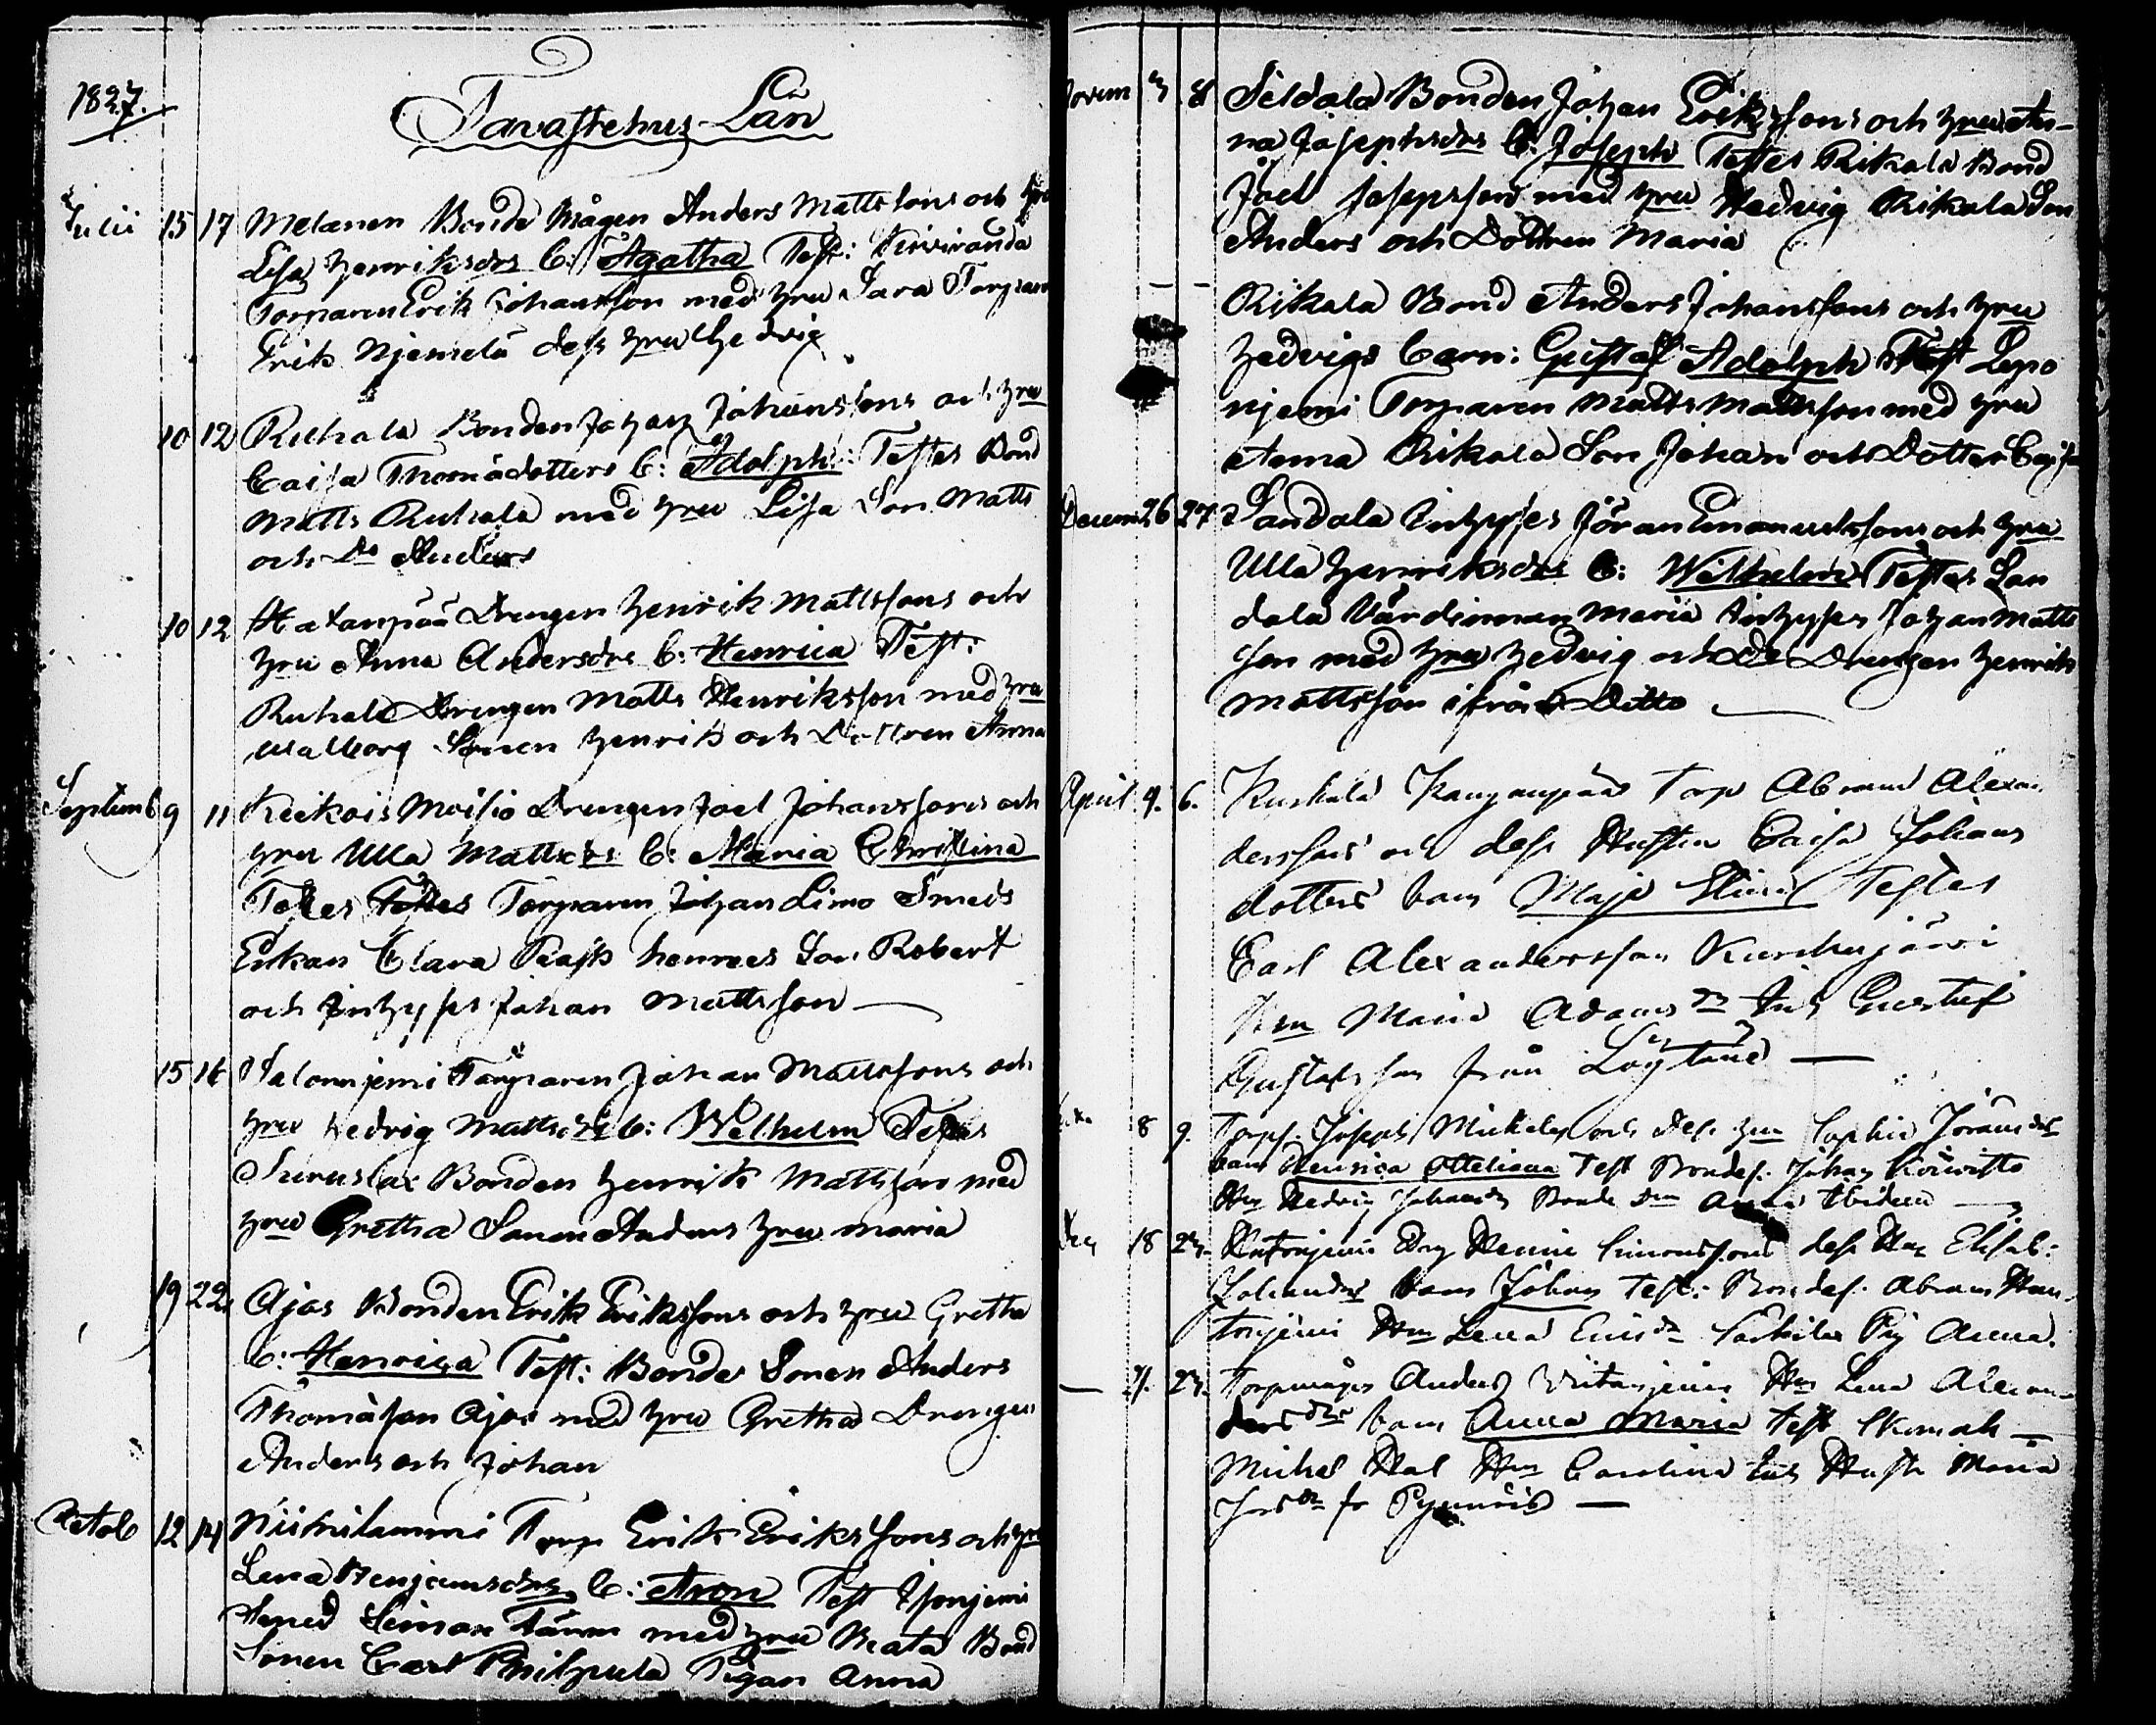 1827.
Tavastehus Län
Julii 15 17 Melanen Bonde Mågen Anders Mattssons och hru
Lisa Henriksdrs b: Agatha Test: Kiviranda
Torparen Erik Johansson med hru Sara Torparn
Erik Njemelä dess hru Hedvig
10 12 Ruhala Bonden Johan Johanssons och hru
Caisa Thomädotters b: Adolph: Testes Bond
Matts Ruhala med hru Lisa Son Matts
och Do Anders
10 12 Drengen Henrik Mattssons och
hru Anna Andersdrs b: Henrica Test:
Ruhala Drengen Matts Henriksson med hru
Walborg Sonen Henrik och Dottren Anna
Septemb 9 11 Moisio Drengen Joel Johanssons och
hru Ulla Mattsdrs b: Maria Christina
Testes Testes Torparen Johan Limo Smeds
Enkan Clara Rask hennes Son Robert
och Inhyses Johan Mattsson
15 16 Salonnjemi Torparen Johan Mattssons och
hru Hedvig Mattsdrs b: Wilhelm Testes
Bonden Henrik Mattsson med
hru Gretha Sonen Anders hru Maria
19 22 Ajos Bonden Erik Erikssons och hru Gretha
b: Henrica Test: Bonde Sonen Anders
Thomäson Ajos med hru Gretha Drengen
Anders och Johan
Octob 12 14 Niinilammi Torp Erik Erikssons och hru
Lena Benjamsdrs b: Aron Test
Smed Simon med hru Beata Bond
Sonen Carl Philpula Pigan Anna
Novem 3 8 Seldala Bonden Johan Erikssons och hru An-
na Josephsdrs b: Joseph Testes Rikala Bond
Joel Josepsson med hru Hedvig Rikala Son
Anders och Dottren Maria
— — Rikala Bond Anders Johanssons och hru
Hedvigs barn: Gustaf Adolph Test Lepo
njemi Torparen Matts Mattsson med hru
Anna Rikala Son Johan och Dotter Caisa
Decem 26 27 Sandala Inhyses Jöran Emanuelssons och hru
Ulla Henriksdrs b: Wilhelm Testes San
dala Värdinnan Maria Inhyses Johan Matts
son med hru Hedvig och Do Drengen Henrik
Mattsson ifrån Ditto
April 4. 6. Torp Abram Alexan
derssons och dess Hustru Caisa Johans
dotters barn Maja Stina Testes
Carl Alexandersson
Hru Maria Adams dr Inh Gustaf
Gustafsson från
8 9. Torp. Joseph Mickels. och des. hru Sophia Jörans dr
barn Henrica Otteliana Test Bondes. Johan Koivisto
Hru Hedvig Johans dr Bonde
18 23. Drg Henric Simonssons dess Hu Elisab:
Johansdrs barn Johan Test: Bondes. Abram
Hru Lena Ericsdr Pig Anna.
— 21. 23. Torpmågen Anders Hu Lena Alexan
ders drs barn Anna Maria Test Skomak
Michel Hu Carolina Inh Hustr Maria